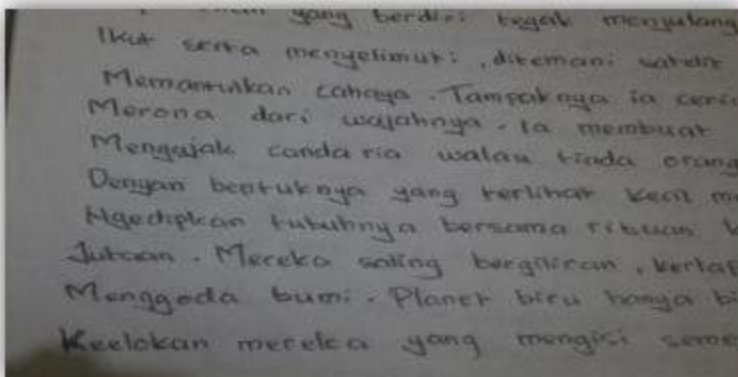 yang berdiri tegak menjulang
Ikut serta menyelimuti, ditemani satelit
Memantulkan cahaya. Tampaknya ia ceri
Merona dari wajahnya. Ia membuat
Mengajak canda ria walau tiada orang
Dengan bentuknya yang terlihat kecil m
Ngedipkan tubuhnya bersama ribuan
Jutaan. Mereka saling bergiliran, kerlap
Menggoda bumi. Planet biru hanya bi
Keelokan mereka yang mengisi seme